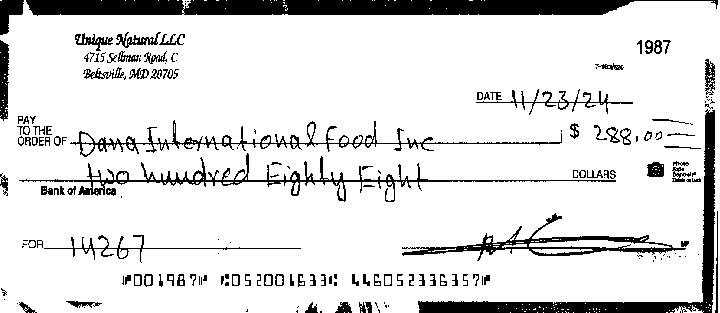 Unique Natural LLC
4715 Sellman Road, C
Beltsville, MD 20705
1987
DATE 11/23/24
PAY
TO THE
ORDER OF Dana International Food Inc $ 288.00
two hundred Eighty Eight DOLLARS
Bank of America
FOR 14267
⑈001987⑈ ⑆052001633⑆ 446052336357⑈